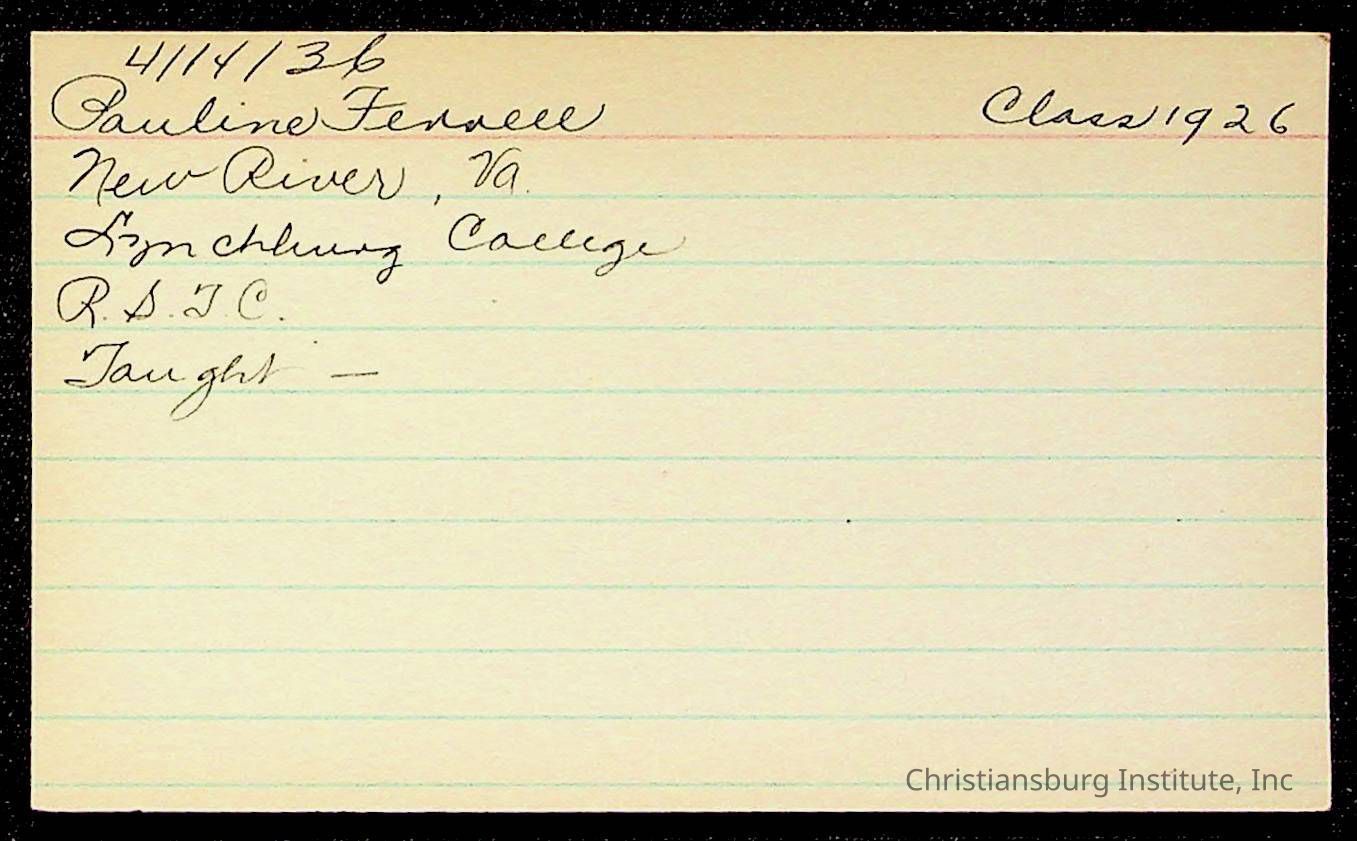 4/14/36
Pauline Ferrell Class 1926
New River, Va.
Lynchburg College
R.S.T.C.
Taught —
Christiansburg Institute, Inc